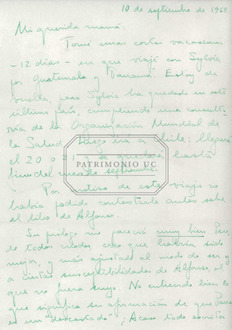 10 de septiembre de 1968
Mi querida mamá:
Tomé unas cortas vacaciones
-12 días- en que viajé con Sylvia
por Guatemala y Panamá. Estoy de
vuelta, pero Sylvia ha quedado en este
último país, cumpliendo una consulto
ría de la Organización Mundial de
la Salud. Luego irá a Chile: llegará
el 20 o se quedará hasta
fines del mes de septiembre.
PATRIMONIO UC
Por motivo de este viaje no
había podido contestarte antes sobre
el libro de Alfonso.
Su prólogo me pareció muy bien. Pero
de todos modos creo que habría sido
mejor, y más ajustado al modo de ser y
a ciertas susceptibilidades de Alfonso, el
que no fuera suyo. No entiendo bien lo
que significa su afirmación de que
es un "descastado". ¿Acaso todo